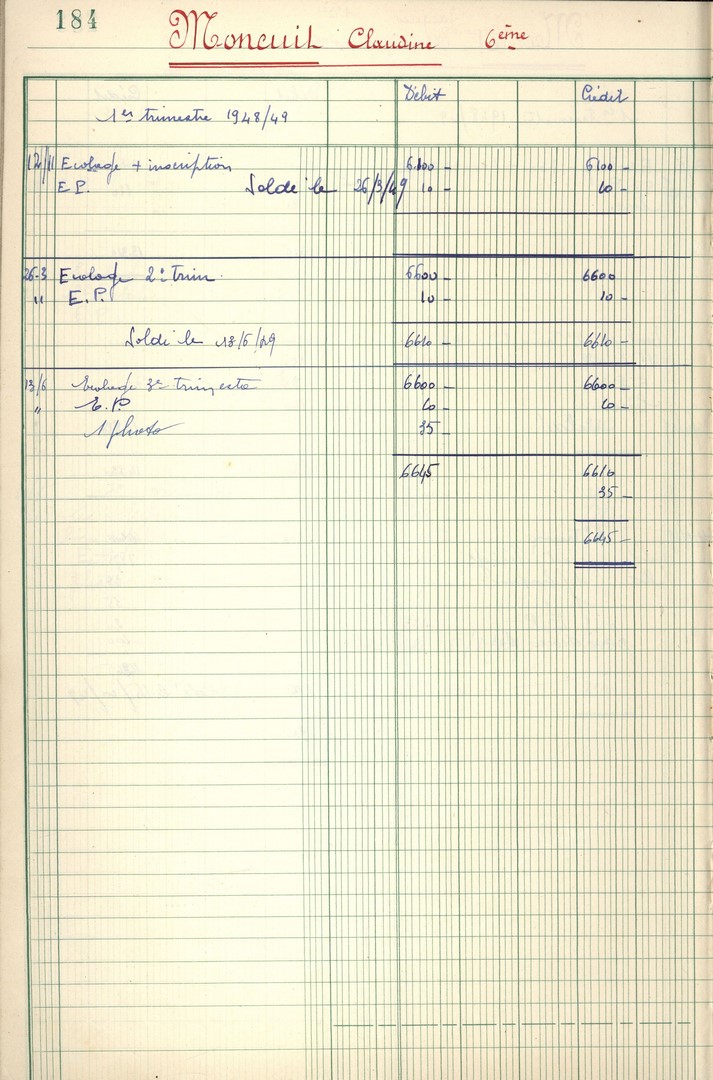 184
Moncuil Claudine 6ème
Débit Crédit
1er trimestre 1948/49
12/11 Ecolage + inscription 6.100 - 6100 -
E P. Soldé le 26/3/49 10 - 10 -
26-3 Ecolage 2e trim. 6600 - 6600
" E.P. 10 - 10 -
Soldé le 13/6/49 6610 - 6610 -
13/6 Ecolage 3e trimestre 6600 - 6600 -
" E.P. 10 - 10 -
1 photo 35 -
6645 6610
35 -
6645 -